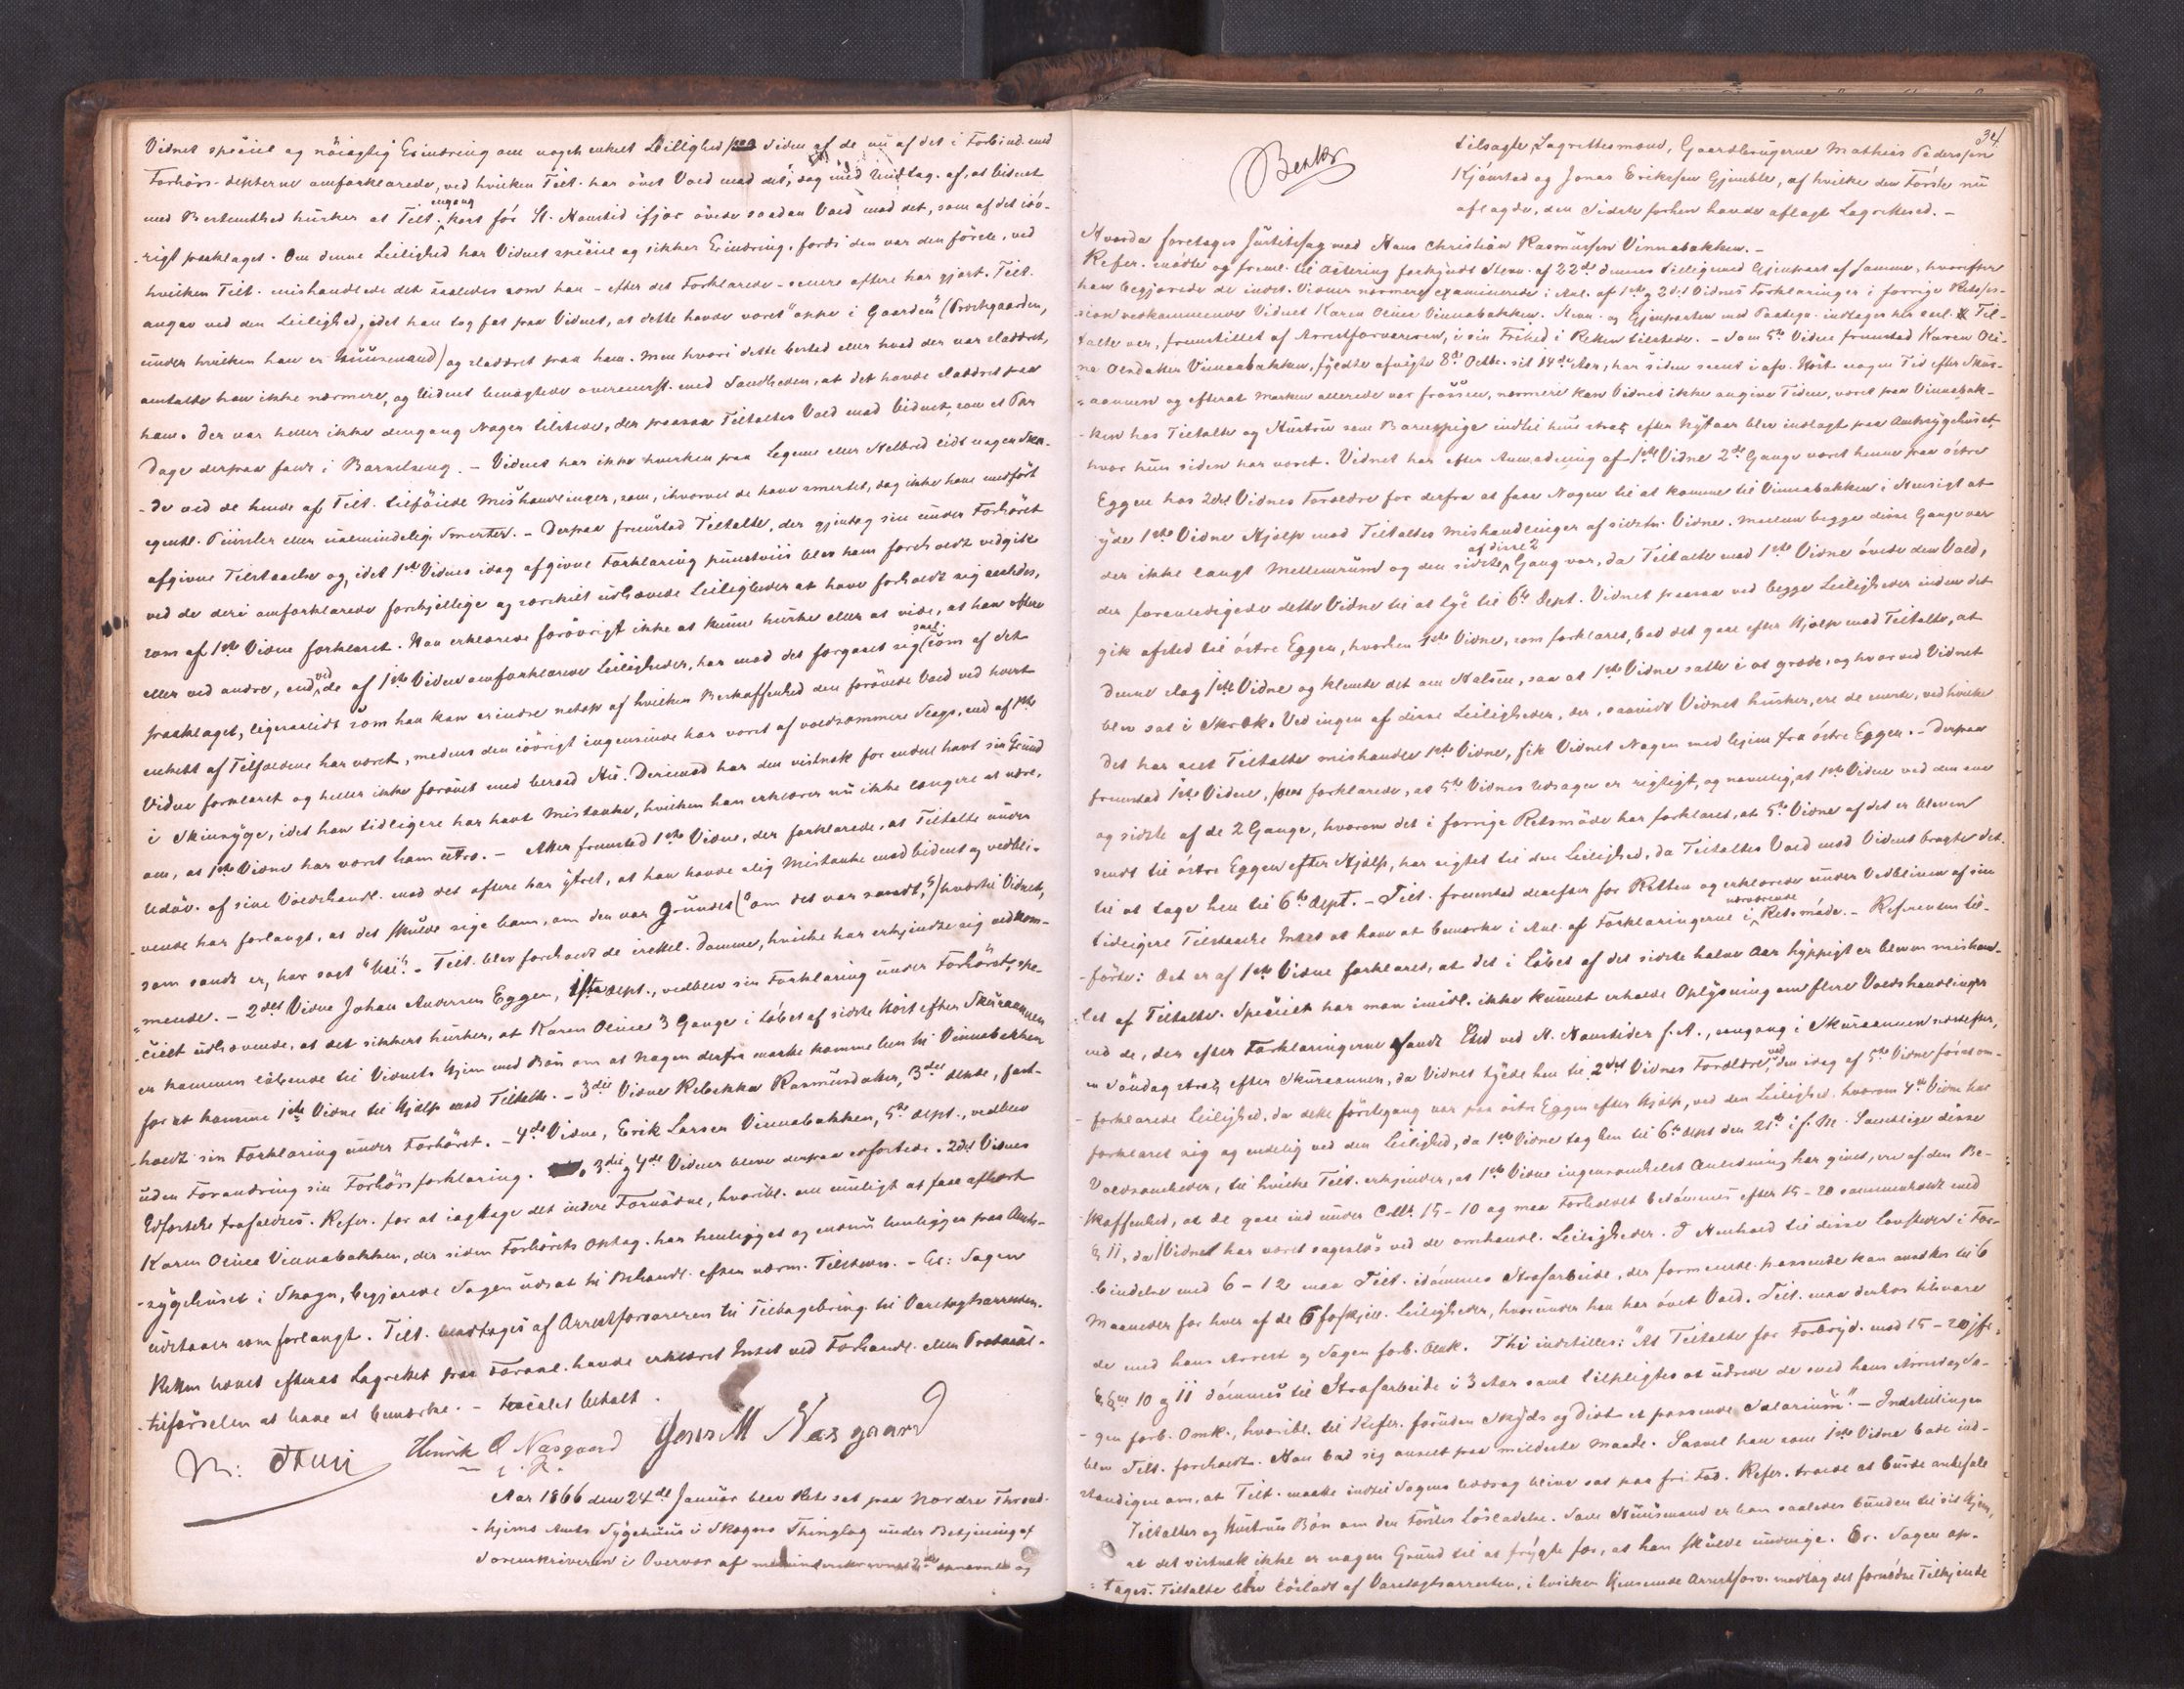 Vidnet speciel og nöiagtig Erindring om nogen enkelt Leilighed paa Siden af de nu af det i Forbind. med
Forhörs-depterne omforklarede, ved hvilken Tilt. har övet Vold mod det; dog med Undtag. af, at Vidnet
med Bestemthed husker at Tilt. engang kort för St. Hanstid ifjor övede saadan Vold mod det, som af det iöv-
-rigt paaklaget. Om denne Leilighed har Vidnet speciel og sikker Erindring, fordi den var den förste, ved
hvilken Tilt. mishandlede det saaledes som han - efter det Forklarede - senere oftere har gjort. Tilt.
angav ved den Leilighed, idet han tog fat paa Vidnet, at dette havde voret "oppe i Gaarden" (Prestgaarden,
under hvilken han er Huusmand) og sladdret paa ham. Men hvori dette bestod eller hvad der var sladdret,
omtalte han ikke nærmere, og Vidnet benægtede overensst. med Sandheden, at det havde sladdret paa
ham. Der var heller ikke dengang Nogen tilstede, der paasaa Tiltaltes Vold mod Vidnet, som et Par
Dage derpaa faldt i Barselseng. - Vidnet har ikke hverken paa Legeme eller Helbred lidt nogen Ska-
-de ved de hende af Tilt. tilföiede Mishandlinger, som, ihvorvel de have smertet, dog ikke have medfört
egentl. Piinsler eller ualmindelig Smerter. - Derpaa fremstod Tiltalte, der gjentog sin under Forhöret
afgivne Tilstaaelse og, idet 1ste Vidnes idag afgivne Forklaring punctviis blev ham foreholdt vedgik
ved de deri omforklarede forskjellige og særskilt udhævede Leiligheder at have forholdt sig saaledes,
som af 1ste Vidne forklaret. Han erklærede forövrigt ikke at kunne huske eller at vide, at han oftere
eller ved andre, end ved de af 1ste Vidne omforklarede Leiligheder, har mod det forgaaet sig saal. som af det
paaklaget, ligesaalidt som han kan erindre netop af hvilken Beskaffenhed den forövede Vold ved hvert
enkelt af Tilfældene har været, medens den iövrigt ingensinde har voret af voldsommere Slags, end af 1ste
Vidne forklaret og heller ikke forövet med beraad Hu. Derimod har den vistnok for endeel havt sin Grund
i Skinsyge, idet han tidligere har havt Mistanke, hvilken han erklærer nu ikke længere at nære,
om, at 1ste Vidne har voret ham utro. - Atter fremstod 1ste Vidne, der forklarede, at Tiltalte under
Udöv. af sine Voldshandl. mod det oftere har ytret, at han havde slig Mistanke mod Vidnet og vedbli-
-vende har forlangt, at det skulde sige ham, om den var grundet ("om det var sandt"), hvortil Vidnet,
som sandt er, har sagt "Nei". - Tilt. blev foreholdt de irettel. Domme, hvilke han erkjendte sig vedkom-
-mende. - 2det Vidne Johan Andersen Eggen, 1ste dept., vedblev sin Forklaring under Forhöret, spe-
-cielt udhævende, at det sikkert husker, at Karen Oline 3 Gange i Löbet af sidste Höst efter Skuraannen
er kommen löbende til Vidnets Hjem med Bön om at Nogen derfra maatte komme hen til Vinnabakken
for at komme 1ste Vidne til Hjælp mod Tiltalte. - 3die Vidne Rebekka Rasmusdatter, 3die depte, fast-
-holdt sin Forklaring under Forhöret. - 4de Vidne, Erik Larsen Vinnabakken, 5te dept., vedblev
uden Forandring sin Forhörsforklaring. 3die og 4de Vidner bleve derpaa edfortede. 2det Vidnes
Edfortelse frafaldtes. Refer. for at iagttage det videre Fornödne, hvoribl. om muligt at faae afhört
Karen Oline Vinnabakken, der siden Forhörets Optag. har henligget og endnu henligger paa Amts-
-sygehuset i Skogn, begjærede Sagen udsat til Behandl. efter nærm. Tilstævn. - Er: Sagen
udstaaer som forlangt. Tilt. modtoges af Arrestforvareren til Tilbagebring. til Varetægtsarresten.
Retten hævet efterat Lagrettet paa Foranl. havde erklæret Intet ved Forhandl. eller Protocol-
-tilförselen at have at bemærke. - Localet betalt.
M: Stui Henrik O Næsgaard Jens M Næsgaard
m. p. P.
Aar 1866 den 24de Januar blev Ret sat paa Nordre Thrond-
-hjems Amts Sygehuus i Skogns Thinglag under Betjening af
Sorenskriveren i Overvær af medundertegnede 2de opnævnte og
34.
Berkr
tilsagte Lagrettesmænd, Gaardbrugerne Mathias Pedersen
Kjönstad og Jonas Eriksen Gjemble, af hvilke den Förste nu
aflagde, den Sidste forhen havde aflagt Lagrettesed. -
Hvorda foretoges Justitssag mod Hans Christian Rasmussen Vinnabakken. -
Refer. mödte og freml. til Actering forkyndt Stevn. af 22de dennes tilligemed Gjenpart af samme, hvorefter
han begjærede de indst. Vidner nærmere examinerede i Anl. af 1ste og 2det Vidnes Forklaringer i forrige Retsses-
-sion vedkommende Vidnet Karen Oline Vinnabakken. Stevn. og Gjenparten med Paategn. indtages her saal. # Til-
-talte var, fremstillet af Arrestforvareren, i sin Frihed i Retten tilstede. - Som 5te Vidne fremstod Karen Oli-
-ne Olsdatter Vinnabakken, fyldte afvigte 8de Octbr. sit 14de Aar, har siden seent i afv. Höst nogen Tid efter Skur-
-aannen og efterat Marken allerede var frössen, nærmere kan Vidnet ikke angive Tiden, voret paa Vinnabak-
-ken hos Tiltalte og Hustru som Barnepige indtil hun strax efter Nytaar blev indlagt paa Amtssygehuset,
hvor hun siden har voret. Vidnet har efter Anmodning af 1ste Vidne 2de Gange voret henne paa östre
Eggen hos 2det Vidnes Forældre for derfra at faae Nogen til at komme til Vinnabakken i Hensigt at
yde 1ste Vidne Hjælp mod Tiltaltes Mishandlinger af sidstn. Vidne. Mellem begge disse Gange var
der ikke langt Mellemrum og den sidste af disse 2 Gang var, da Tiltalte mod 1ste Vidne övede den Vold,
der foranledigede dette Vidne til at tye til 6te Dept. Vidnet paasaa ved begge Leiligheder inden det
gik afsted til östre Eggen, hvorhen 1ste Vidne, som forklaret, bad det gaae efter Hjælp mod Tiltalte, at
denne slog 1ste Vidne og klemte det om Halsen, saa at 1ste Vidne satte i at græde, og hvorved Vidnet
blev sat i Skræk. Ved ingen af disse Leiligheder, der, saavidt Vidnet husker, ere de eneste, ved hvilke
det har seet Tiltalte mishandle 1ste Vidne, fik Vidnet Nogen med hjem fra östre Eggen. - Derpaa
fremstod 1ste Vidne, som forklarede, at 5te Vidnes Udsagn er rigtigt, og navnlig, at 1ste Vidne ved den ene
og sidste af de 2 Gange, hvorom det i forrige Retsmöde har forklaret, at 5te Vidne af det er bleven
sendt til östre Eggen efter Hjælp, har sigtet til den Leilighed, da Tiltaltes Vold mod Vidnet bragte det
til at tage hen til 6te dept. - Tilt. fremstod derefter for Retten og erklærede under Vedbliven af sin
tidligere Tilstaaelse Intet at have at bemærke i Anl. af Forklaringerne i nærværende Retsmöde. - Referenten til-
-förte: Det er af 1ste Vidne forklaret, at det i Löbet af det sidste halve Aar hyppigt er bleven mishand-
-let af Tiltalte. Specielt har man imidl. ikke kunnet erholde Oplysning om flere Voldshandlinger
end de, der efter Forklaringerne fandt Sted ved St. Hanstider f. A., engang i Skuraannen næstefter,
en Söndag strax efter Skuraannen, da Vidnet tyede hen til 2det Vidnes Forældre, ved den idag af 5te Vidne först om-
-forklarede Leilighed, da dette förstegang var paa östre Eggen efter Hjælp, ved den Leilighed, hvorom 4de Vidne har
forklaret sig og endelig ved den Leilighed, da 1ste Vidne tog hen til 6te dept den 21de i f. M. Samtlige disse
Voldsomheder, til hvilke Tilt. erkjender, at 1ste Vidne ingensomhelst Anledning har givet, ere af den Be-
skaffenhed, at de gaae ind under Crll. 15-10 og maa Forholdet bedömmes efter 15-20 sammenholdt med
§ 11, da Vidnet har været sageslös ved de omhandl. Leiligheder. I Henhold til disse Lovsteder i For-
bindelse med 6-12 maa Tilt. idömmes Strafarbeide, der formentl. passende kan ansættes til 6
Maaneder for hver af de 6 forskjell. Leiligheder, hvorunder han har övet Vold. Tilt. maa derhos tilsvare
de med hans Arrest og Sagen forb. Omk. Thi indstilles: "At Tiltalte for Forbryd. mod 15-20 jfr.
§§ne 10 og 11 dömmes til Strafarbeide i 3 Aar samt tilpligtes at udrede de med hans Arrest og Sa-
-gen forb. Omk., hvoribl. til Refer. foruden Skyds og Diæt et passende Salarium." - Indstillingen
blev Tilt. foreholdt. Han bad sig anseet paa mildeste Maade. Saavel han som 1ste Vidne bade ind-
stændigen om, at Tilt. maatte indtil Sagens Uddrag blive sat paa fri Fod. Refer. troede at burde anbefale
Tiltaltes og Hustrus Bön om den Förstes Lösladelse. Som Huusmand er han saaledes bunden til sit Hjem,
at det vistnok ikke er nogen Grund til at frygte for, at han skulde undvige. Er. Sagen op-
-tages. Tiltalte blev lösladt af Varetægtsarresten, i hvilken Henseende Arrestforv. modtog det fornödne Tilkjende